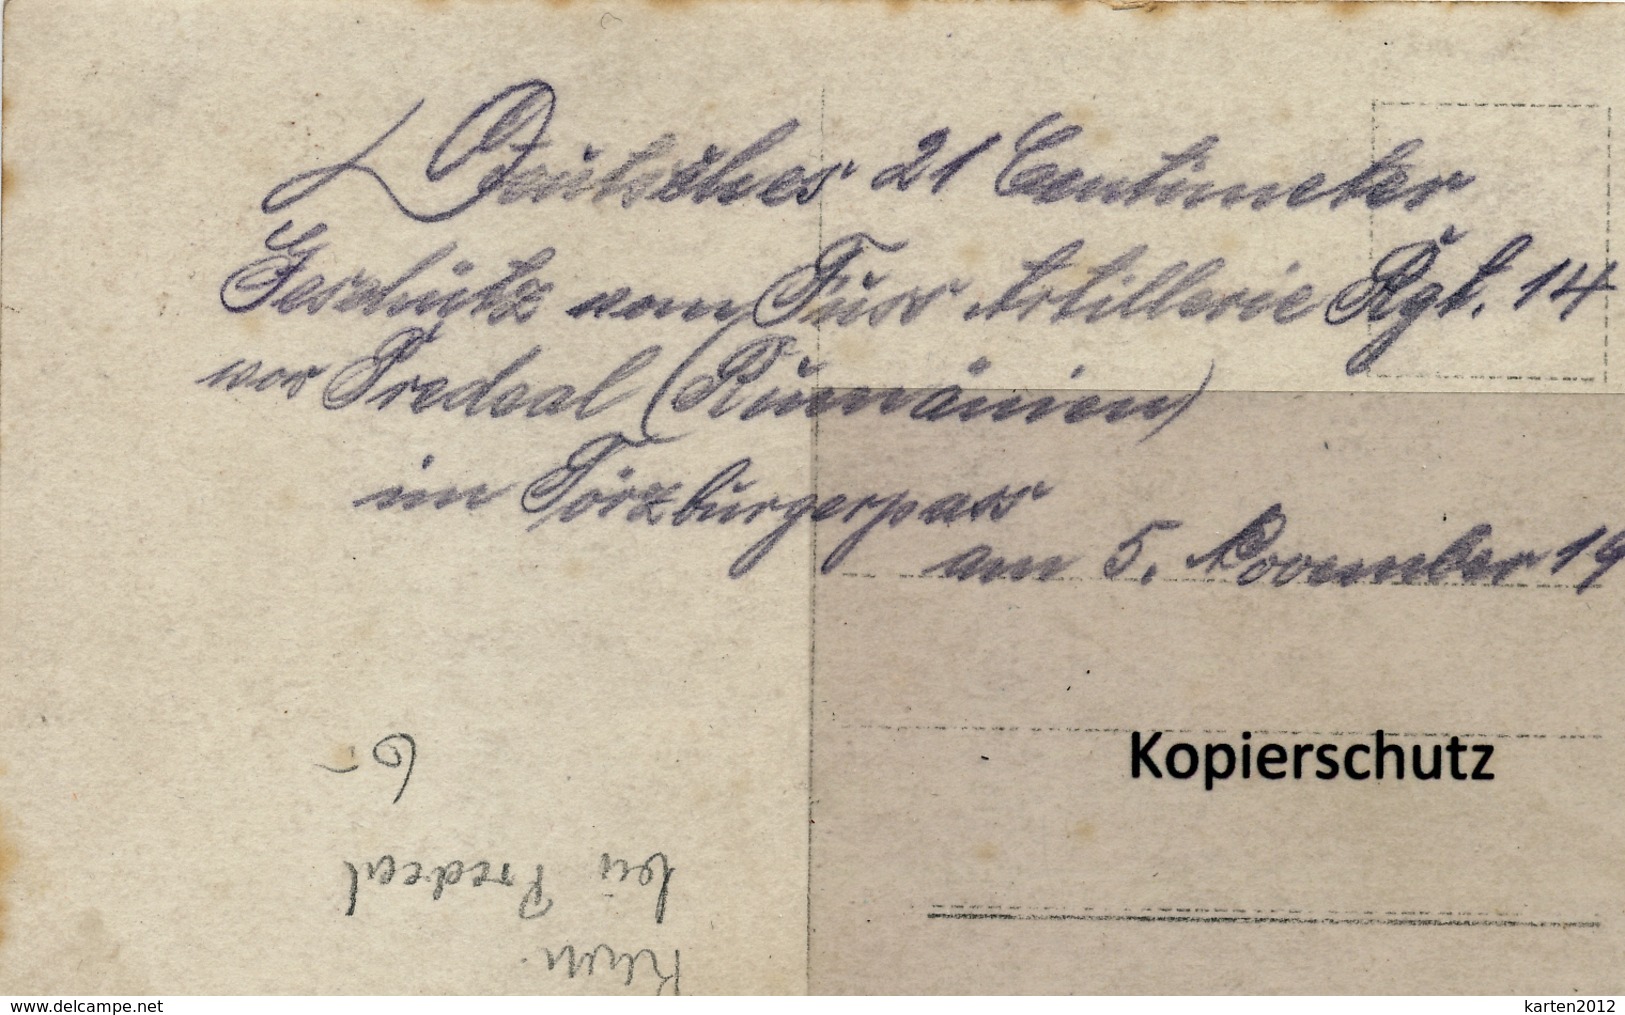 Deutsches 21 Centimeter
Geschütz vom Fuss Artillerie Rgt. 14
vor Predeal (Rumänien)
im Törzburgerpass
am 5. November 19
Kopierschutz
6-
Rum.
bei Predeal
delcampe.net
karten2012